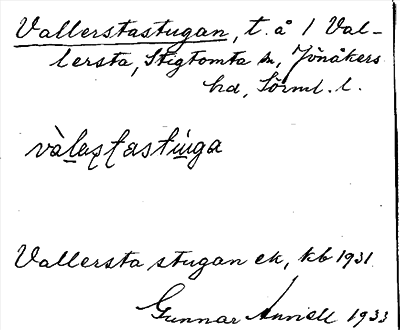 Vallerstastugan, t. å 1 Val-
lersta, Stigtomta sn, Jönåkers
hd, Sörml. l.
vàlas̨t̨astuga
Vallersta stugan ek, kb 1931
Gunnar 1933